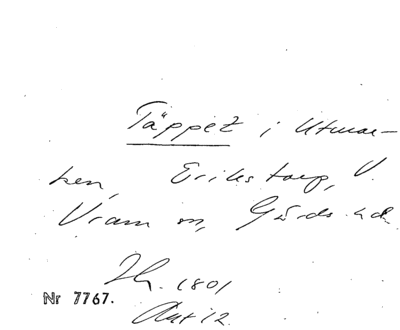 Täppet i Utmar-
ken, Erikstorp, V.
Vram sn, Gärds hd.
Jh. 1801
Nr 7767.
Akt 12.